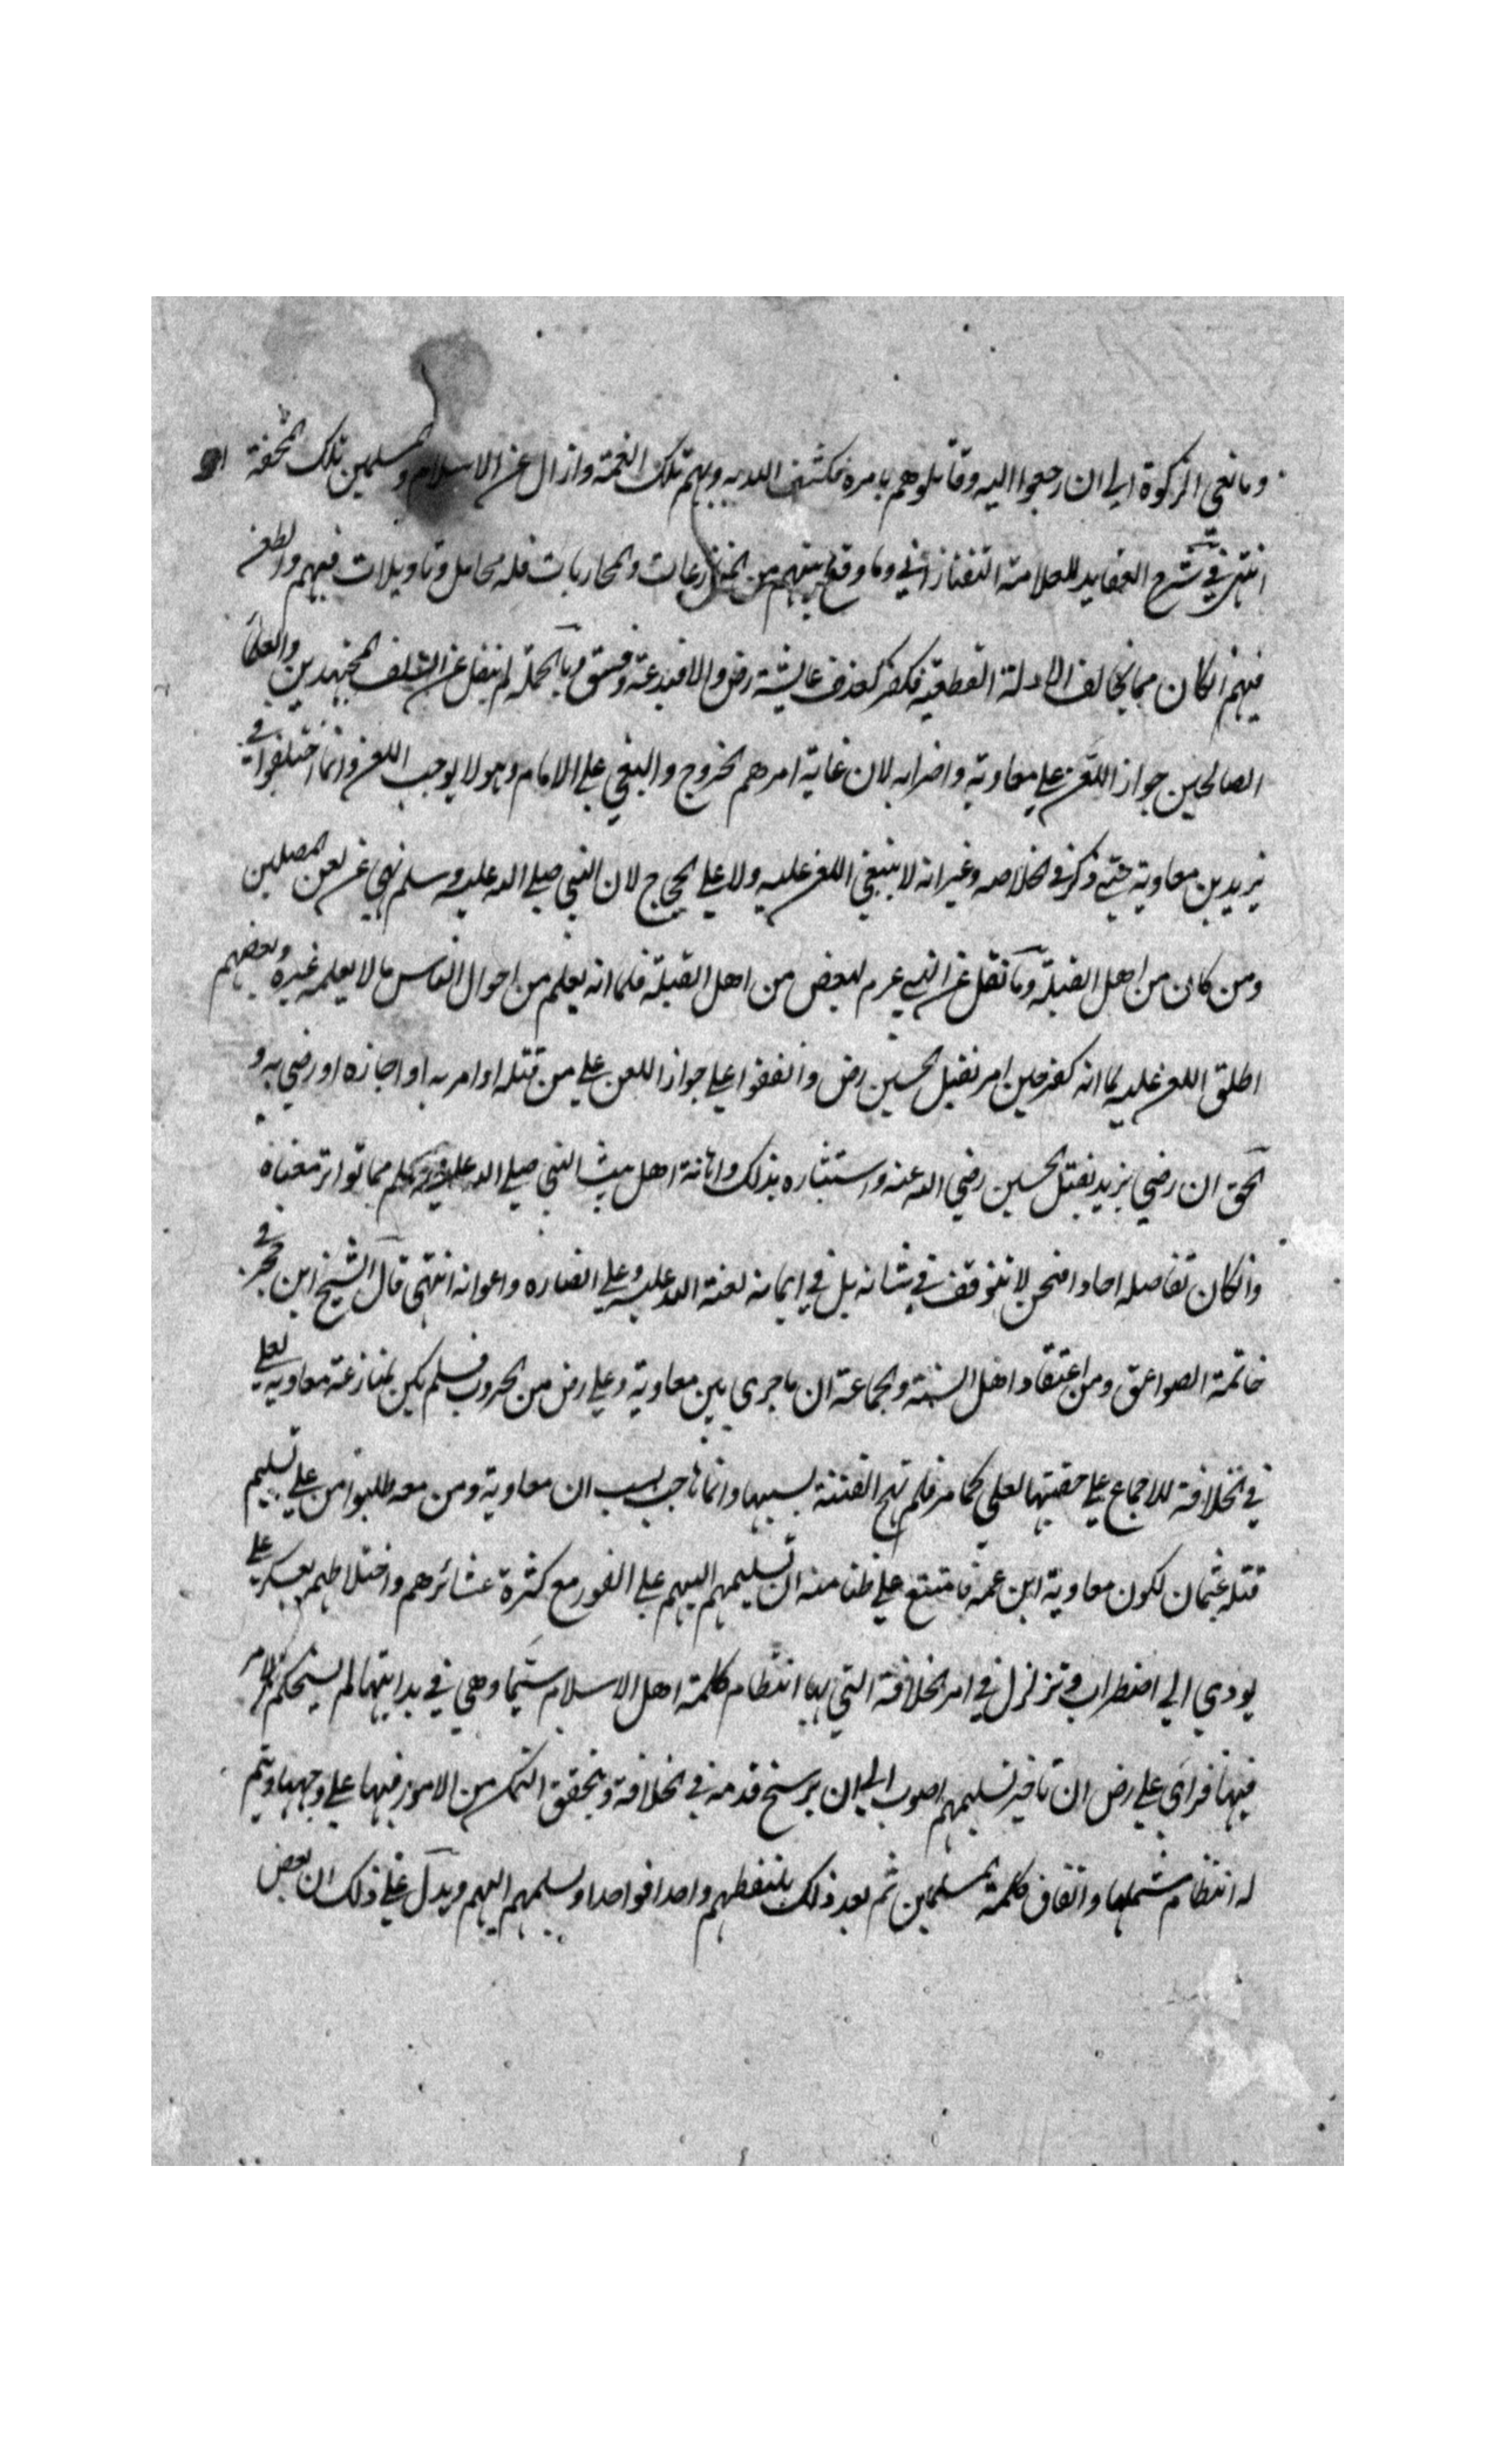 ومانعي الزكوة الي ان رجعوا اليه وقاتلوهم بامره فكشف الله به وبهم تلك الغمة وازال عن الاسلام والمسلمين تلك المحنة
انتهى في شرح العقايد للعلامة التفتازاني وما وقع بينهم من المنازعات والمحاربات فله محامل وتاويلات فسبهم والطعن
فيهم انكان مما يخالف الادلة القطعية فكفر كقذف عايشة رض والا فبدعة وفسق وبالجملة لم ينقل عن السلف المجتهدين والعلماء
الصالحين جواز اللعن علي معاوية واضرابه لان غاية امرهم الخروج والبغي علي الامام وهو لا يوجب اللعن وانما اختلفوا في
يزيد بن معاوية حتي ذكر في الخلاصه وغيره انه لا ينبغي اللعن عليه ولا علي الحجاج لان النبي صلي الله عليه وسلم نهي عن لعن المصلين
ومن كان من اهل القبلة وما نقل عن النبي عرم لبعض من اهل القبلة فلما انه يعلم من احوال الناس ما لا يعلمه غيره وبعضهم
اطلق اللعن عليه لما انه كفر حين امر بقتل الحسين رض واتفقوا علي جواز اللعن علي من قتله او امر به او اجازه او رضي به و
الحق ان رضي يزيد بقتل الحسين رضي الله عنه واستبشاره بذلك واهانة اهل بيت النبي صلي الله عليه وسلم مما تواتر معناه
وانكان تفاصيله احادا فنحن لا نتوقف في شانه بل في ايمانه لعنة الله عليه وعلي انصاره واعوانه انتهى قال الشيخ ابن حجر في
خاتمة الصواعق ومن اعتقاد اهل السنة والجماعة ان ما جرى بين معاوية وعلي رض من الحروب فلم يكن لمنازعة معاوية لعلي
في الخلافة للاجماع علي حقيتها لعلي كما مر فلم تهج الفتنة بسببها وانما هاجت بسبب ان معاوية ومن معه طلبوا من علي تسليم
قتلة عثمان لكون معاوية ابن عمه فامتنع علي ظنا منه ان تسليمهم اليهم علي الفور مع كثرة عشائرهم واختلاطهم بعسكر علي
يودي الي اضطراب وتزلزل في امر الخلافة التي بها انتظام كلمة اهل الاسلام سيما وهي في بدايتها لم يستحكم الامر
فيها فراى علي رض ان تاخير تسليمهم اصوب الي ان يرسخ قدمه في الخلافة ويتحقق التمكن من الامور فيها علي وجهها ويتم
له انتظام شملها واتفاق كلمة المسلمين ثم بعد ذلك يلتقطهم واحدا فواحدا ويسلمهم اليهم ويدل علي ذلك ان بعض